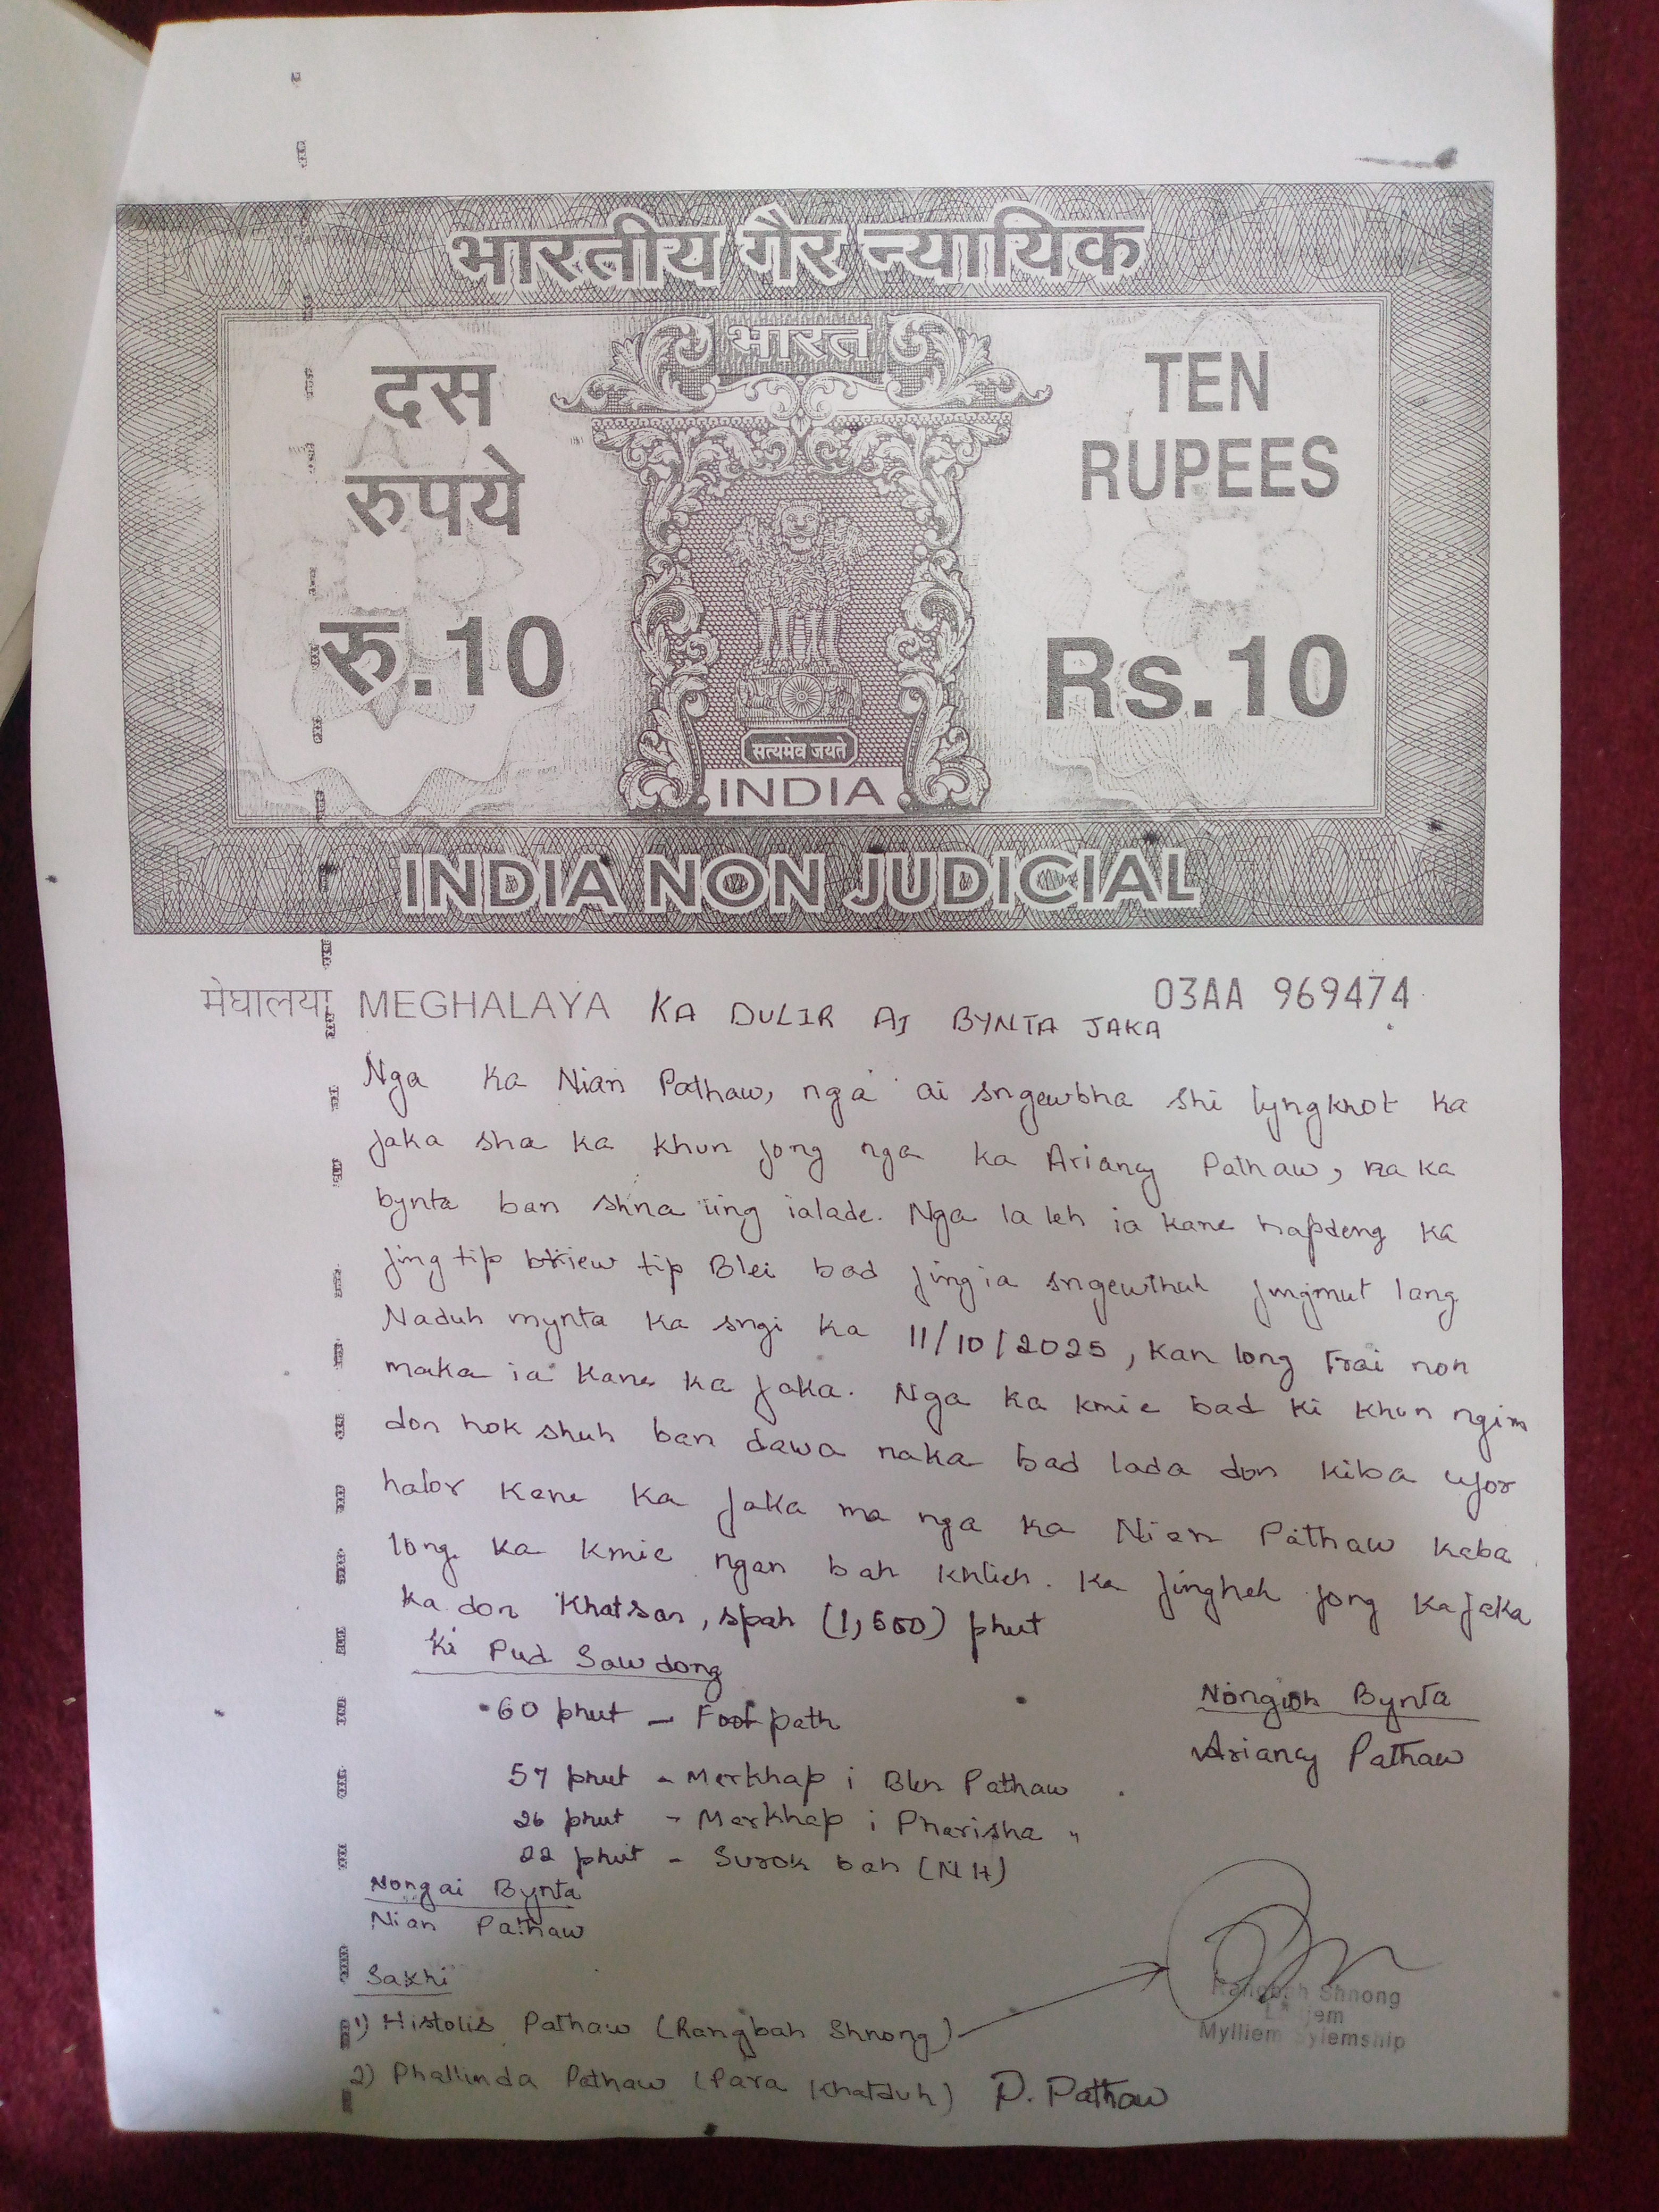 भारतीय गैर न्यायिक
भारत
दस
रुपये
रु.10
TEN
RUPEES
Rs.10
सत्यमेव जयते
INDIA
INDIA NON JUDICIAL
मेघालया MEGHALAYA 03AA 969474
KA DULIR AI BYNTA JAKA
Nga ka Nian Pathaw, nga ai sngewbha shi lyngkhot ka
jaka sha ka khun jong nga ka Ariancy Pathaw, na ka
bynta ban shna ïing ialade. Nga la leh ia kane hapdeng ka
jingtip briew tip Blei bad jingia sngewthuh jingmut lang
Naduh mynta ka sngi ka 11/10/2025, kan long trai noh
maka ia kane ka jaka. Nga ka kmie bad ki khun ngim
don hok shuh ban dawa naka bad lada don kiba ujor
halor kane ka jaka ma nga ka Nian Pathaw kaba
long ka kmie ngan bah khlieh. Ka jingheh jong ka jaka
ka don khatsan, spah (1,500) phut
Ki Pud Sawdong
60 phut - Footpath
57 phut - Merkhap i Blen Pathaw
26 phut - Merkhap i Pharisha "
22 phut - Surok bah (NH)
Nongioh Bynta
Ariancy Pathaw
Nongai Bynta
Nian Pathaw
Sakhi
1) Histolis Pathaw (Rangbah Shnong)
Rangbah Shnong
Mylliem Sylemship
2) Phallinda Pathaw (Para Khatduh) P. Pathaw